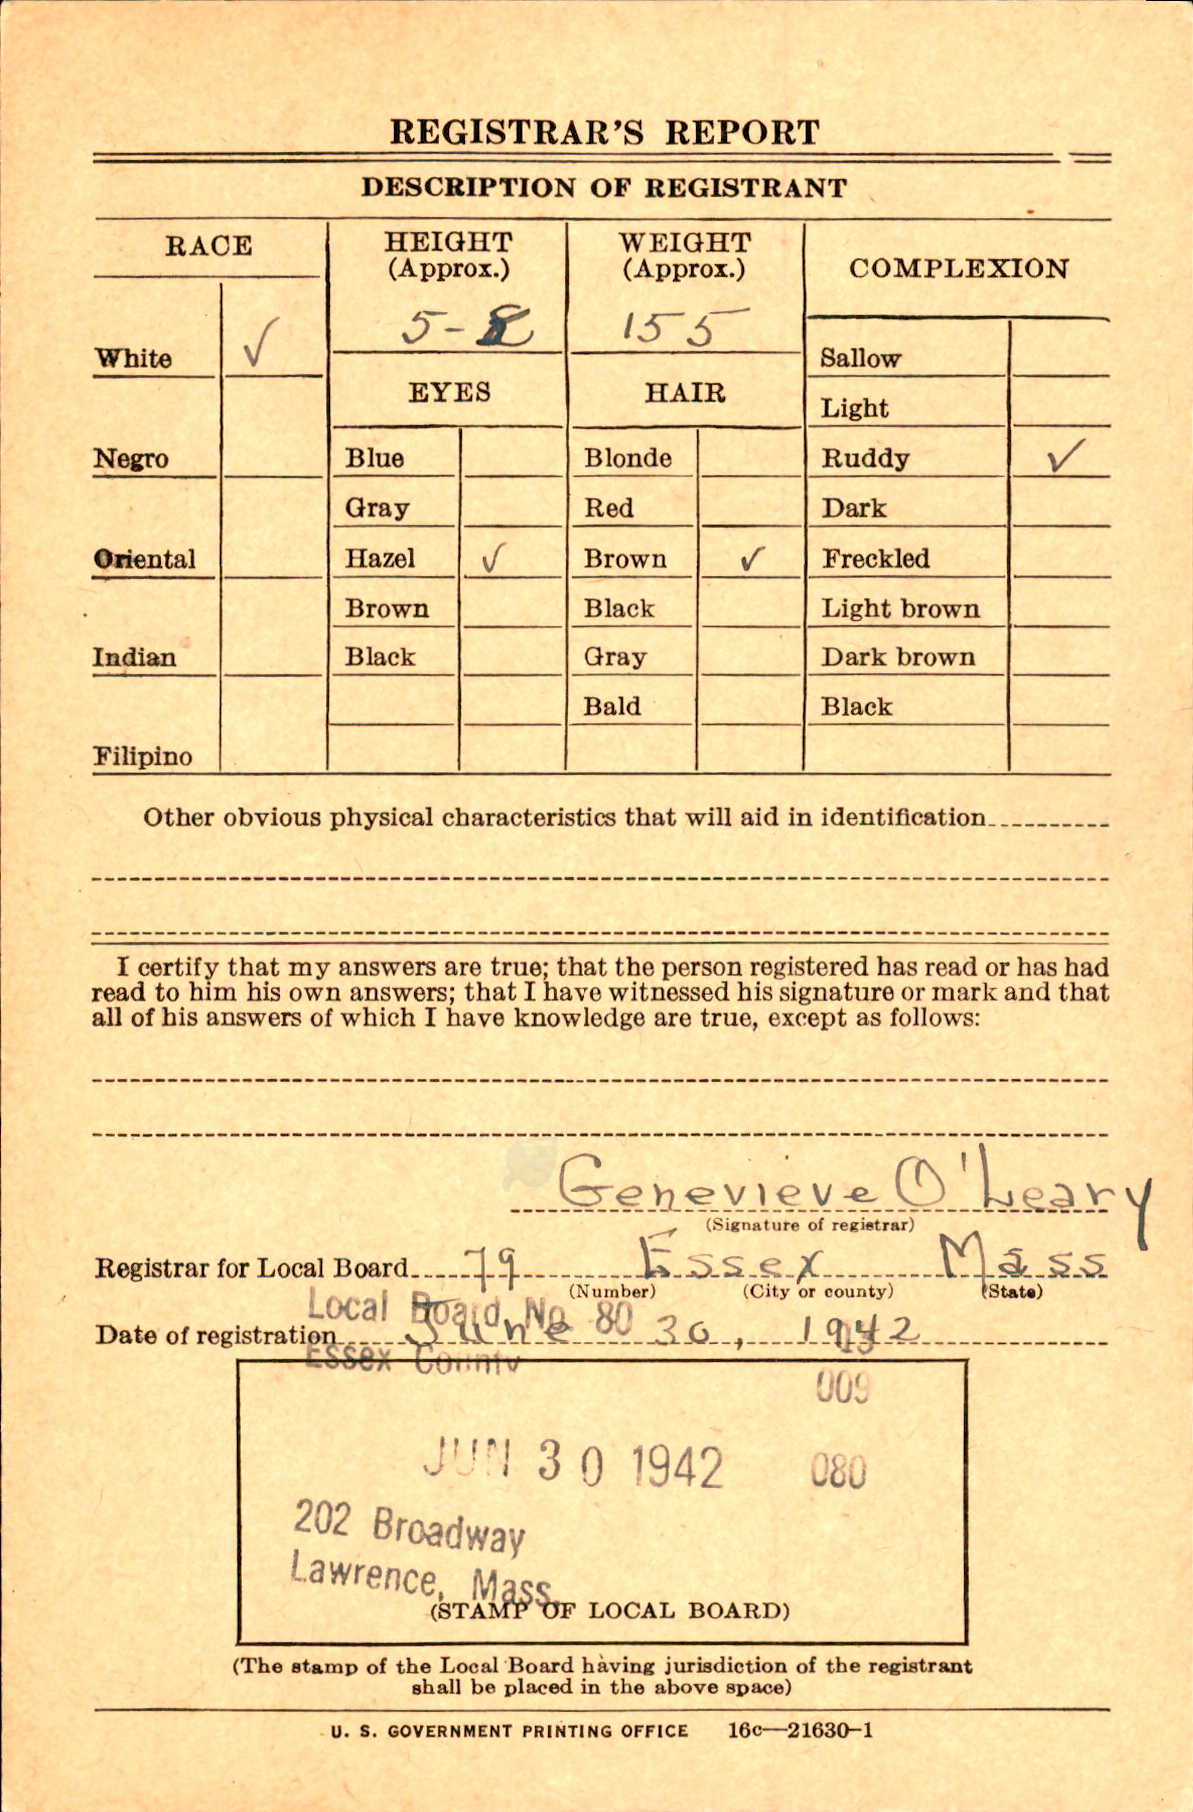 REGISTRAR'S REPORT
DESCRIPTION OF REGISTRANT
RACE
HEIGHT
(Approx.)
WEIGHT
(Approx.)
COMPLEXION
5-8
155
White ✓
Sallow
EYES
HAIR
Light
Negro
Blue
Blonde
Ruddy ✓
Gray
Red
Dark
Oriental
Hazel ✓
Brown ✓
Freckled
Brown
Black
Light brown
Indian
Black
Gray
Dark brown
Bald
Black
Filipino
Other obvious physical characteristics that will aid in identification
I certify that my answers are true; that the person registered has read or has had
read to him his own answers; that I have witnessed his signature or mark and that
all of his answers of which I have knowledge are true, except as follows:
Genevieve O'Leary
(Signature of registrar)
Registrar for Local Board 79 Essex Mass
(Number) (City or county) (State)
Local Board No. 80
Date of registration June 30, 1942
Essex County
009
JUN 30 1942
080
202 Broadway
Lawrence, Mass.
(STAMP OF LOCAL BOARD)
(The stamp of the Local Board having jurisdiction of the registrant
shall be placed in the above space)
U. S. GOVERNMENT PRINTING OFFICE 16c—21630-1